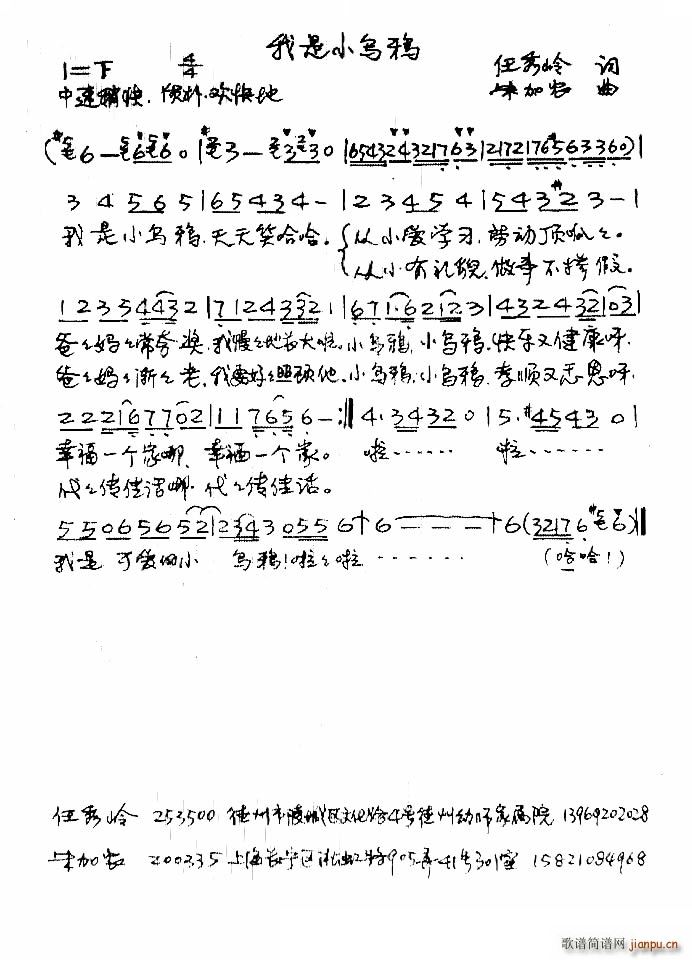 我是小乌鸦
1=下 4/4 任秀岭 词
中速稍快. 欢快地 朱加农 曲
3 4 5 6 5 | 6 5 4 3 4 - | 2 3 4 5 4 | 5 4 3 #2 3 - |
我是小乌鸦.天天笑哈哈。 从小爱学习.劳动顶呱々。
从小有礼貌.做事不掺假。
1 2 3 5 4 4 3 2 | 7 1 2 4 3 3 2 1 | 6 7 1· 6 2 1 2 3 | 4 3 2 4 3 2 1 0 3 |
爸々妈々常夸奖.我慢々地长大啦.小乌鸦,小乌鸦.快乐又健康呀.
爸々妈々渐々老.我要好々照顾他.小乌鸦.小乌鸦.孝顺又感恩呀.
2 2 2 1 6 7 7 0 2 | 1 1 7 6 5 6 - :‖ 4· 3 4 3 2 0 | 5· #4 5 4 3 0 |
幸福一个家哪.幸福一个家。 啦…… 啦……
代々传佳话哪.代々传佳话。
5 5 0 6 5 6 5 2 | 2 3 4 3 0 5 5 6 † 6 — — — † 6 (3 2 1 7 6 6) ‖
我是 可爱的小 乌鸦!啦々啦 …… (哈哈!)
任秀岭 253500 德州市陵城区文化路4号德州幼师家属院 13969202028
朱加农 200335 上海长宁区淞虹路905弄41号301室 15821084968
歌谱简谱网
jianpu.cn